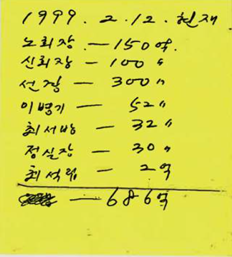 1999. 2. 12. 현재
노회장 — 150억.
신회장 — 100 〃
선장 — 300 〃
이병기 — 52 〃
최서방 — 32 〃
정실장 — 30 〃
최석림 — 2억
— 686억